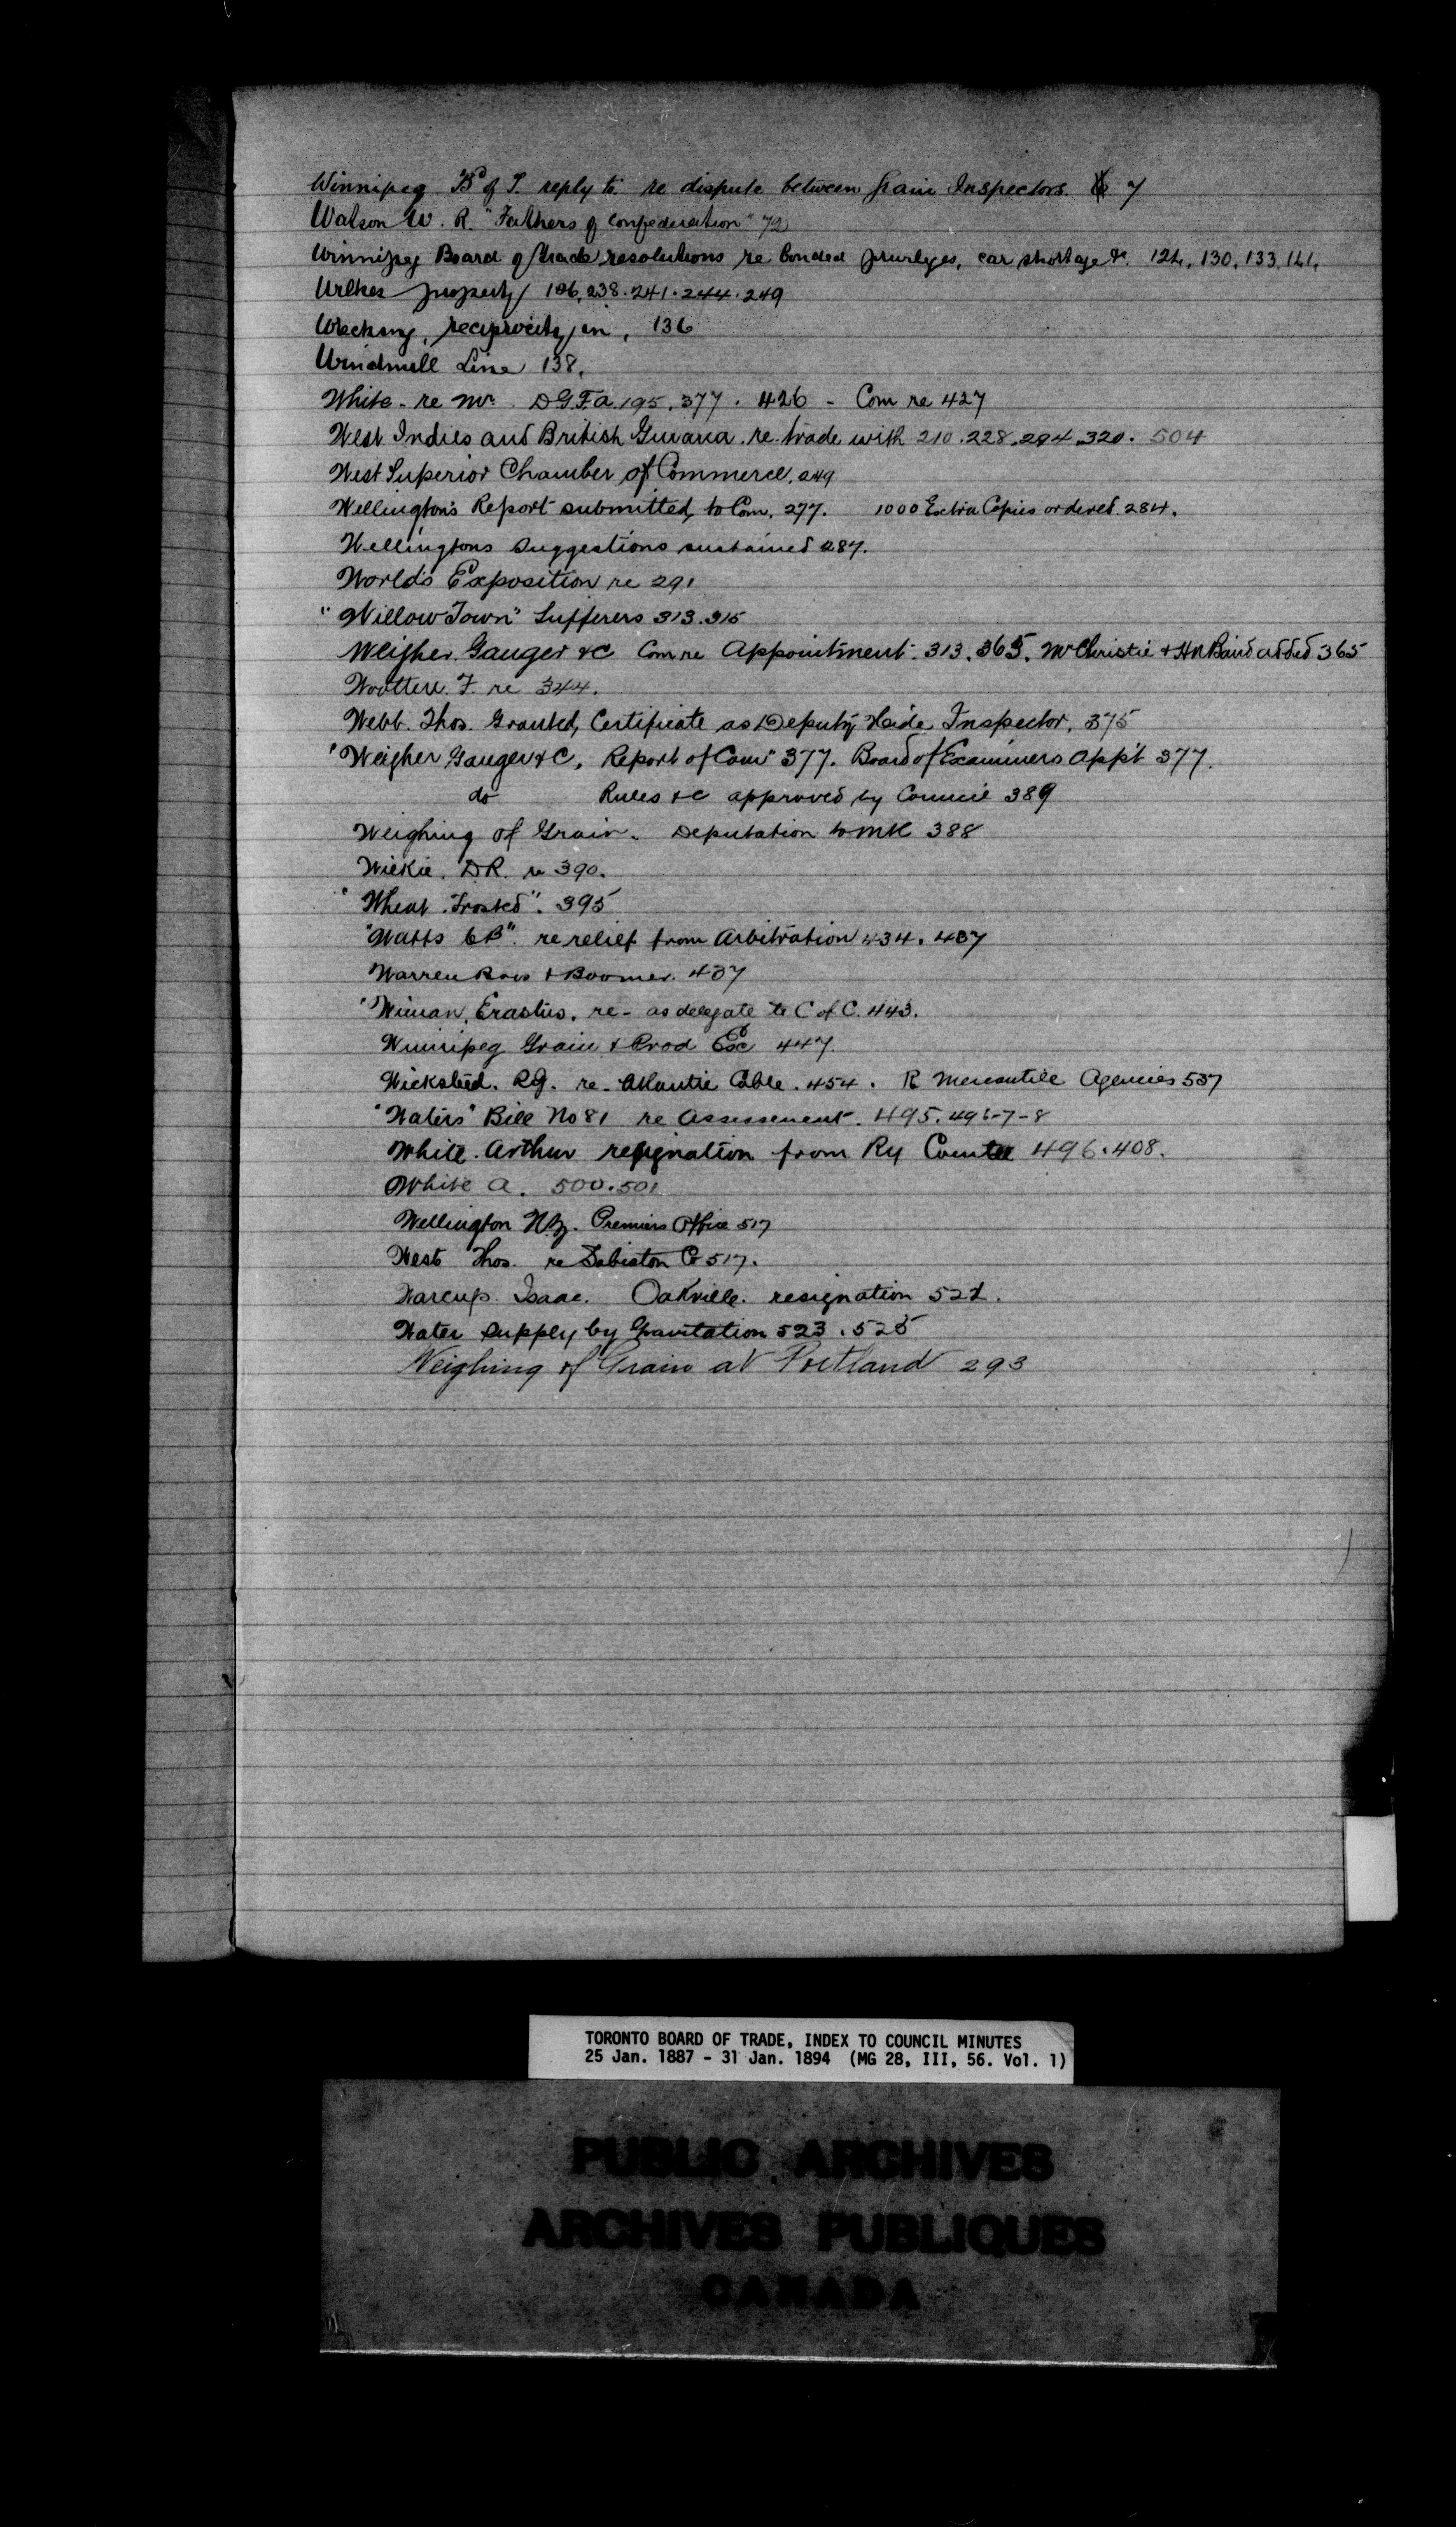 Winnipeg Bd of T. reply to re dispute between Grain Inspectors. 7
Watson W. R. "Fathers of Confederation" 72
Winnipeg Board of Trade resolutions re bonded privileges, car shortage &c. 124, 130, 133, 141,
property 186, 238. 241. 244. 249
Wrecking, reciprocity in, 136
Windmill Line 138.
White - re Mr. D.G.F.A. 195. 377. 426 - Com re 427
West Indies and British Guiana. re. trade with 210. 228. 294. 320. 504
West Superior Chamber of Commerce. 249
Wellington's Report submitted to Com. 277. 1000 Extra Copies ordered. 284.
Wellingtons Suggestions sustained 287.
World's Exposition re 291
"Willow Town" Sufferers 313. 315
Weigher. Gauger &c Com re Appointment. 313. 365. Mr Christie & H N Baird added 365
F. re 344.
Webb. Thos. Granted, Certificate as Deputy Hide Inspector. 375
"Weigher Gauger &c, Report of Com" 377. Board of Examiners App't 377.
do Rules &c approved by Council 389
Weighing of Grain. Deputation to 388
Wilkie. D.R. re 390.
"Wheat Frosted". 395
"Watts C B". re relief from Arbitration 434. 437
Warren Bros & Boomer. 437
"Wiman, Erastus. re - as delegate to C of C. 443.
Winnipeg Grain & Prod Exc 447.
Wicksteed. R.G. re - Atlantic Cable. 454. R Mercantile Agencies 537
"Waters" Bill No 81 re Assessement. 495. 496-7-8
White. Arthur resignation from Ry Comtee 496. 408.
White A. 500. 501
Wellington N.Z. Premiers Office 517
West Thos. re Sabiston Co 517.
Warcup. Isaac. Oakville. resignation 522.
Water Supply by Gravitation 523. 525
Weighing of Grain at Portland 293
TORONTO BOARD OF TRADE, INDEX TO COUNCIL MINUTES
25 Jan. 1887 - 31 Jan. 1894 (MG 28, III, 56. Vol. 1)
PUBLIC ARCHIVES
ARCHIVES PUBLIQUES
CANADA